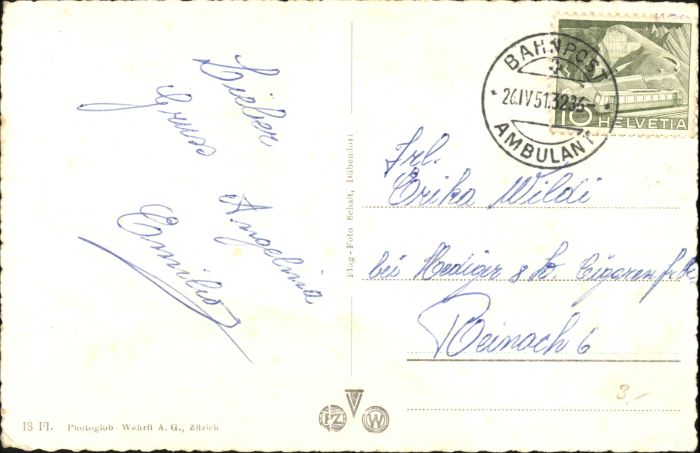 Lieber
Gruss
Angelina
Emilio
Flug-Foto Schait, Dübendorf
BAHNPOST
26.IV.51.3235
AMBULANT
10 HELVETIA
Frl.
Erika Wildi
bei Hediger & Co. Cigarrenf.
Reinach 6
3.-
18 Fl. Photoglob-Wehrli A. G., Zürich
PZ W